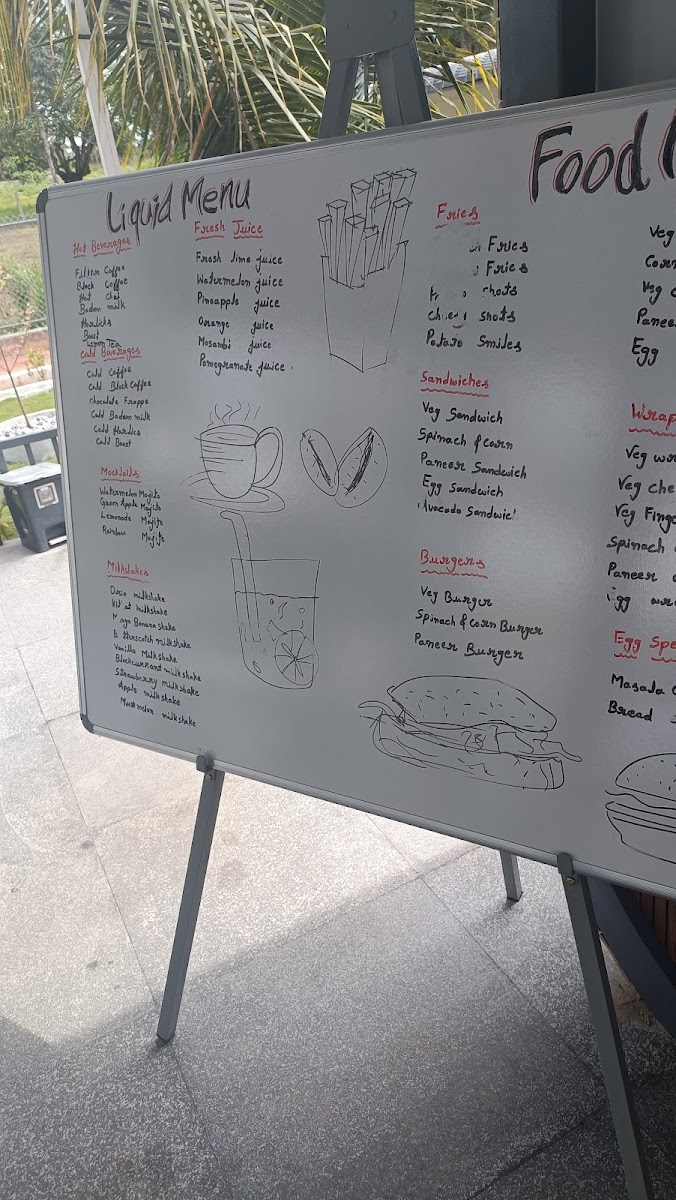 Liquid Menu
Hot Beverages
Filter Coffee
Black Coffee
Hot
Badam milk
Horlicks
Boost
Lemon Tea
Cold Beverages
Cold Coffee
Cold Black Coffee
chocolate Frappe
Cold Badam milk
Cold Horlics
Cold Boost
Mocktails
Watermelon Mojito
Green Apple Mojito
Lemonade Mojito
Rainbow Mojito
Milkshakes
Oreo milkshake
milkshake
Banana shake
milkshake
Vanilla Milkshake
Blackcurrant milkshake
Strawberry milkshake
Apple milkshake
Muskmelon milkshake
Fresh Juice
Fresh lime juice
Watermelon juice
Pineapple juice
Orange juice
Mosambi juice
Pomegranate juice
Food
Fries
Fries
Fries
shots
shots
Potato Smiles
Sandwiches
Veg Sandwich
Spinach & corn
Paneer Sandwich
Egg Sandwich
Avocado Sandwic
Burgers
Veg Burger
Spinach & corn Burger
Paneer Burger
Veg
Corn
Veg
Panee
Egg
Wrap
Veg wr
Veg che
Veg Finge
Spinach
Paneer
Egg wr
Egg Spe
Masala
Bread